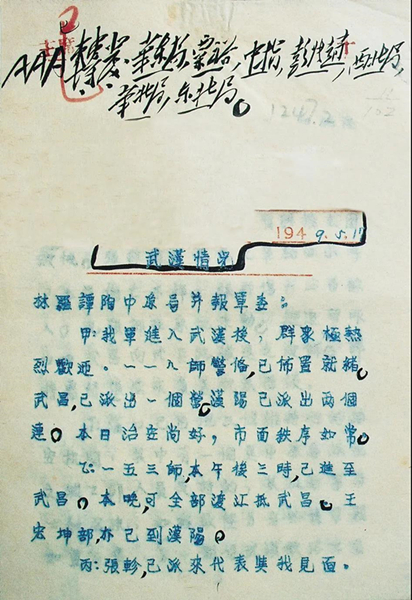 AAA
華北局，东北局。
1949.5.17
武漢情況
林羅譚陶中原局并報軍委：
甲：我軍進入武漢後，群衆極熱
烈歡迎。一一八師警備，已佈置就緒。
武昌，已派出一個營。漢陽已派出兩個
連。本日治安尚好，市面秩序如常。
乙：一五三師，本午後三時，已進至
武昌。本晚，可全部渡江抵武昌。王
宏坤部，亦已到漢陽。
丙：張軫，已派來代表與我見面。